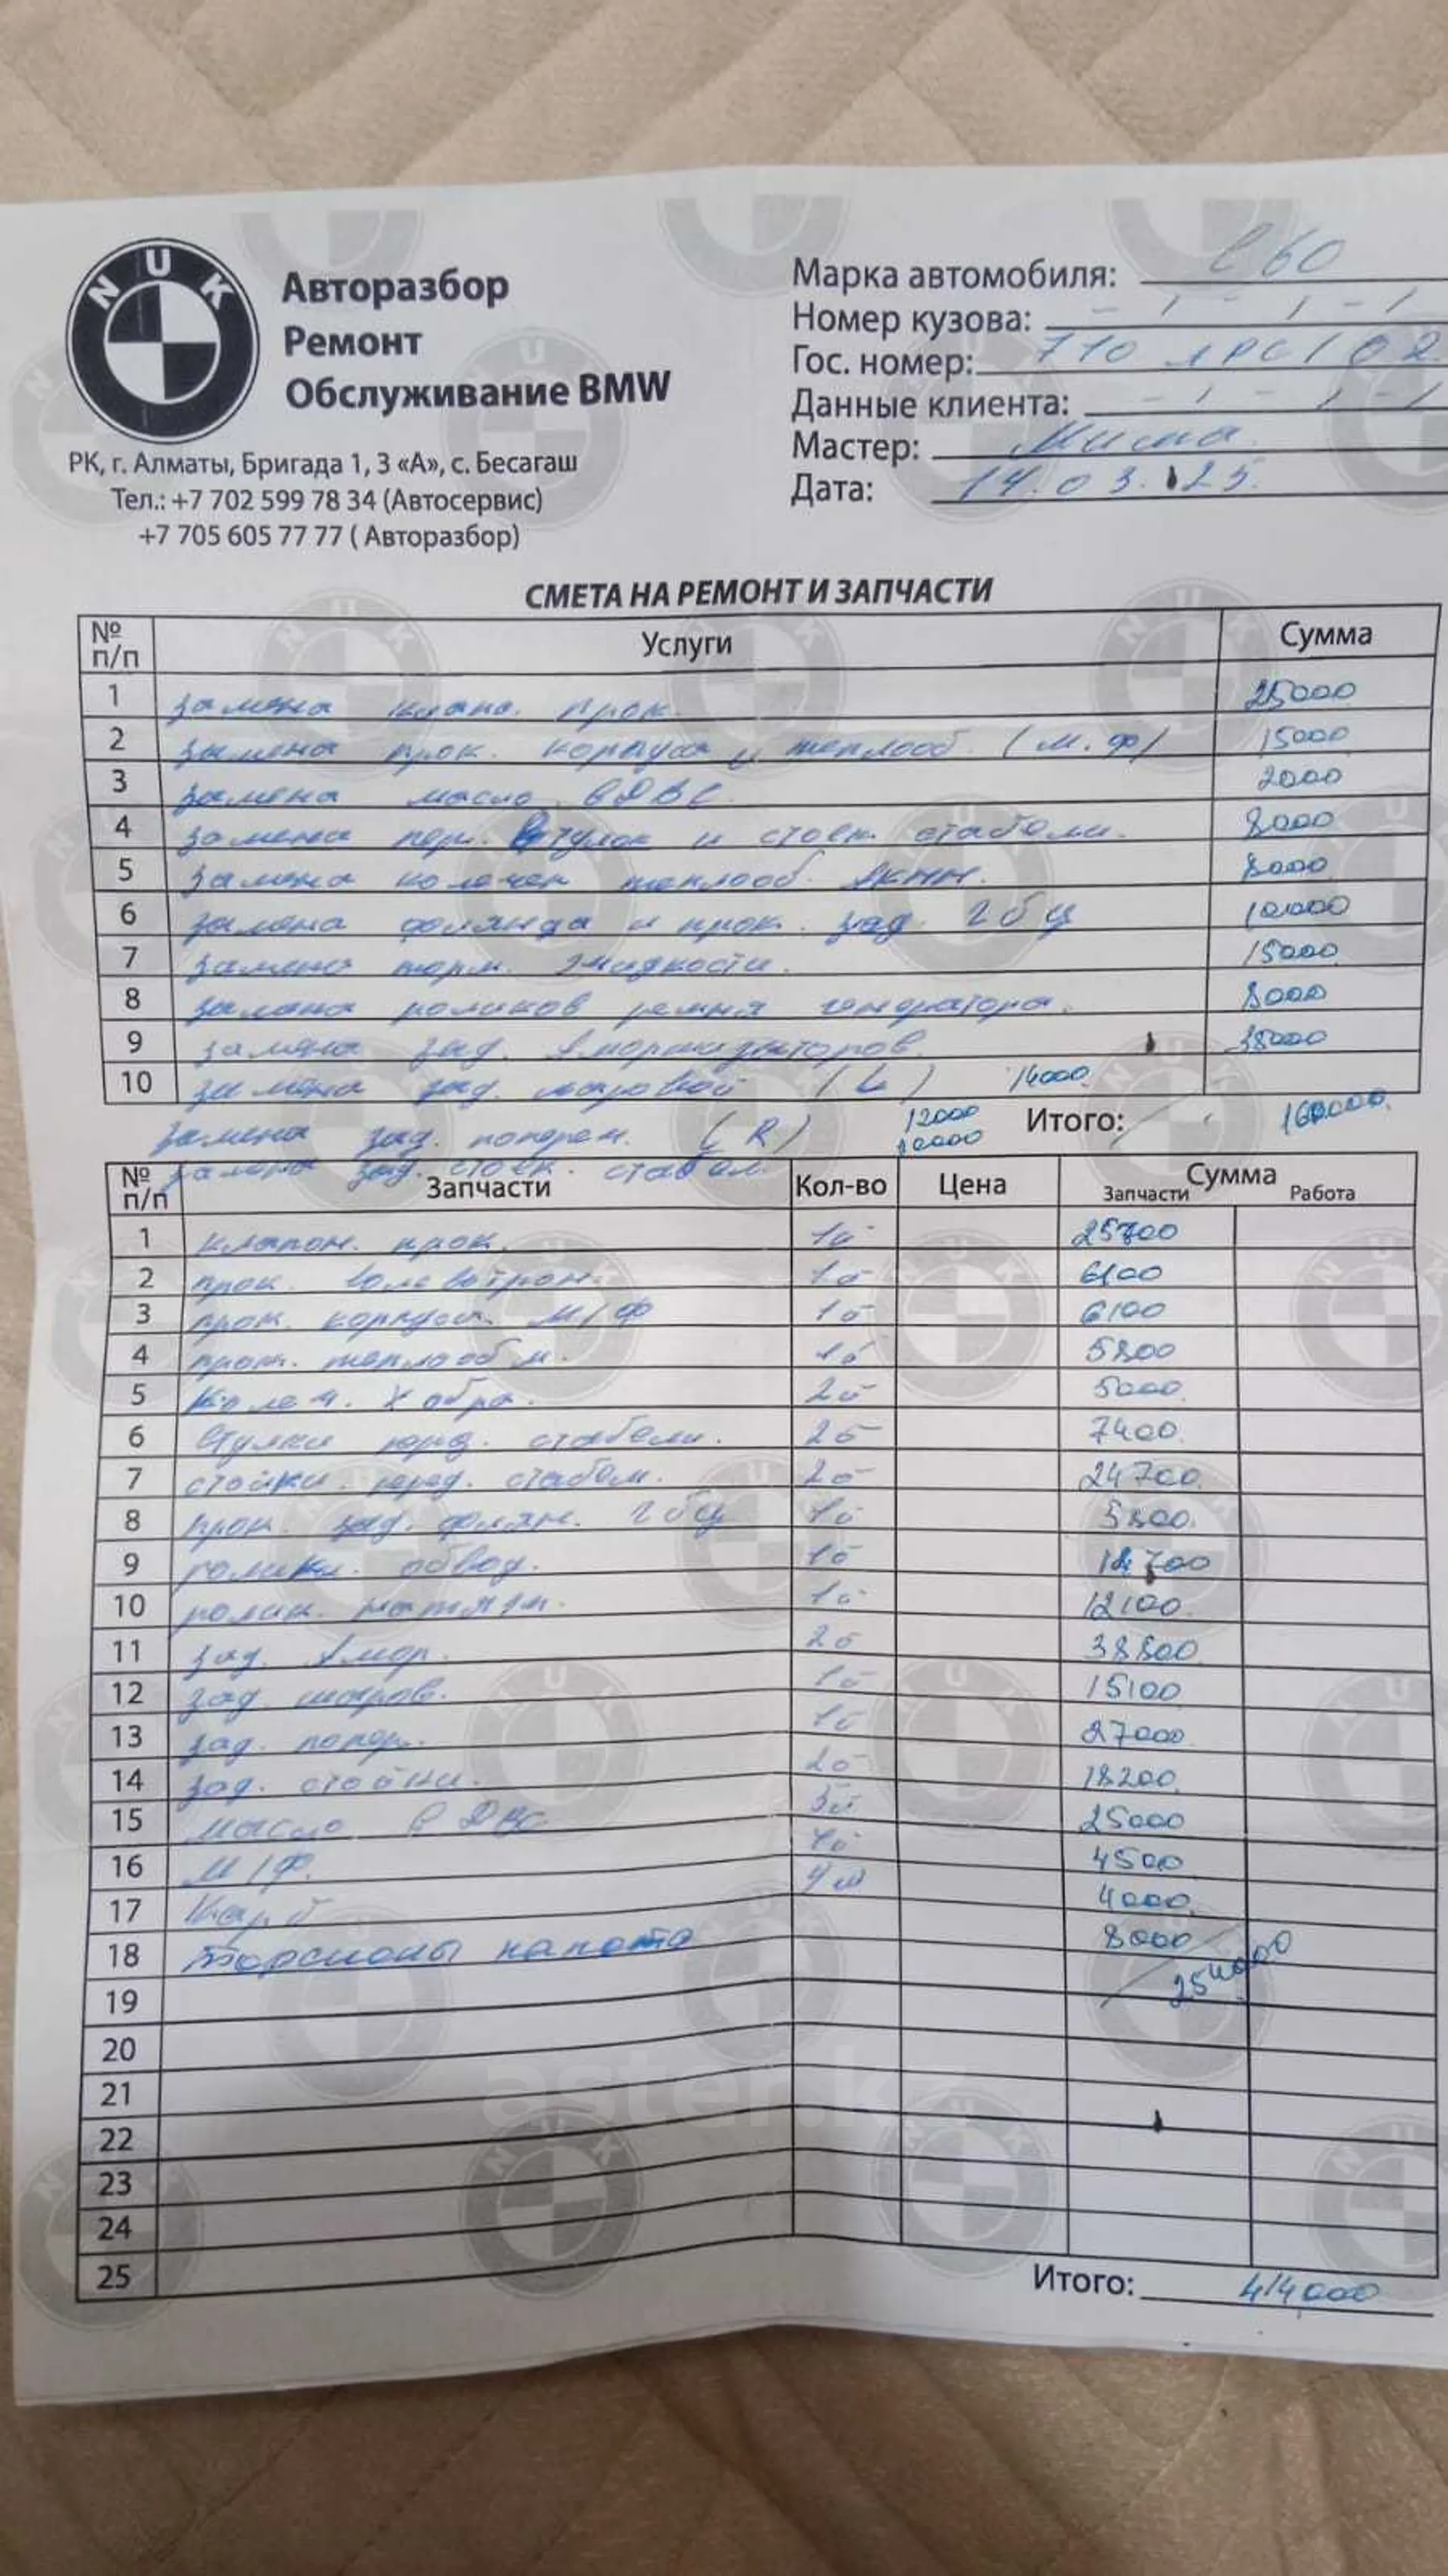 NUK
Авторазбор
Ремонт
Обслуживание BMW
РК, г. Алматы, Бригада 1, 3 «А», с. Бесагаш
Тел.: +7 702 599 78 34 (Автосервис)
+7 705 605 77 77 ( Авторазбор)
Марка автомобиля: е60
Номер кузова:
Гос. номер: 710 02
Данные клиента:
Мастер: Миша
Дата: 14.03.25.
СМЕТА НА РЕМОНТ И ЗАПЧАСТИ
№ п/п Услуги Сумма
1 замена клап. прок. 25000
2 замена прок. корпуса и теплооб. (м.ф) 15000
3 замена масло в ДВС 2000
4 замена пер. втулок и стоек стабели. 8000
5 замена колечек теплооб. АКПП. 8000
6 замена флянца и прок. зад. гбц 10000
7 замена торм. жидкости. 15000
8 замена роликов ремня генератора. 8000
9 замена зад. Амортизаторов. 38000
10 замена зад. шаровой (L) 14000
замена зад. попереч. (R) 12000
замена зад. стоек. стабел. 10000
Итого: 160000
№ п/п Запчасти Кол-во Цена Сумма
Запчасти Работа
1 клапон. прок. 1 25700
2 прок. 1 6100
3 прок. корпуса. М/Ф 1 6100
4 прок. теплооб м. 1 5800
5 Колеч. 2 5000
6 Втулки перед. стабели. 2 7400
7 стойки. перед. стабел. 2 24700
8 прок. зад. флян. гбц 1 5800
9 ролики. обвод. 1 700
10 ролик. натяж. 1 12100
11 зад. Амор. 2 38800
12 зад. шаров. 1 15100
13 зад. попер. 1 27000
14 зад. стойки. 2 18200
15 масло в ДВС 25000
16 М/Ф. 1 4500
17 Карб 4 ш 4000
18 Торсионы капота 8000
254000
19
20
21
22
23
24
25
Итого: 414000
aster.k